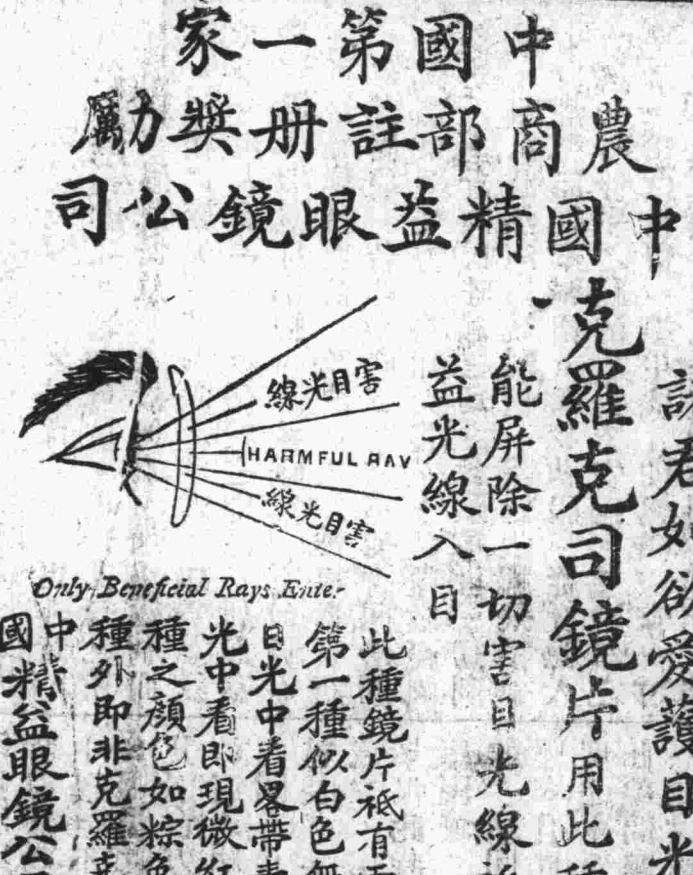 中國第一家
農商部註册奬勵
中國精益眼鏡公司
諸君如欲愛護目光
克羅克司鏡片用此種
能屏除一切害目光線
益光線入目
害目光線
HARMFUL RAY
害目光線
Only Beneficial Rays Ente
此種鏡片祗有
第一種似白色無
日光中看畧帶
光中看即現微紅
種之顏色如粽色
種外即非克羅克
中國精益眼鏡公司